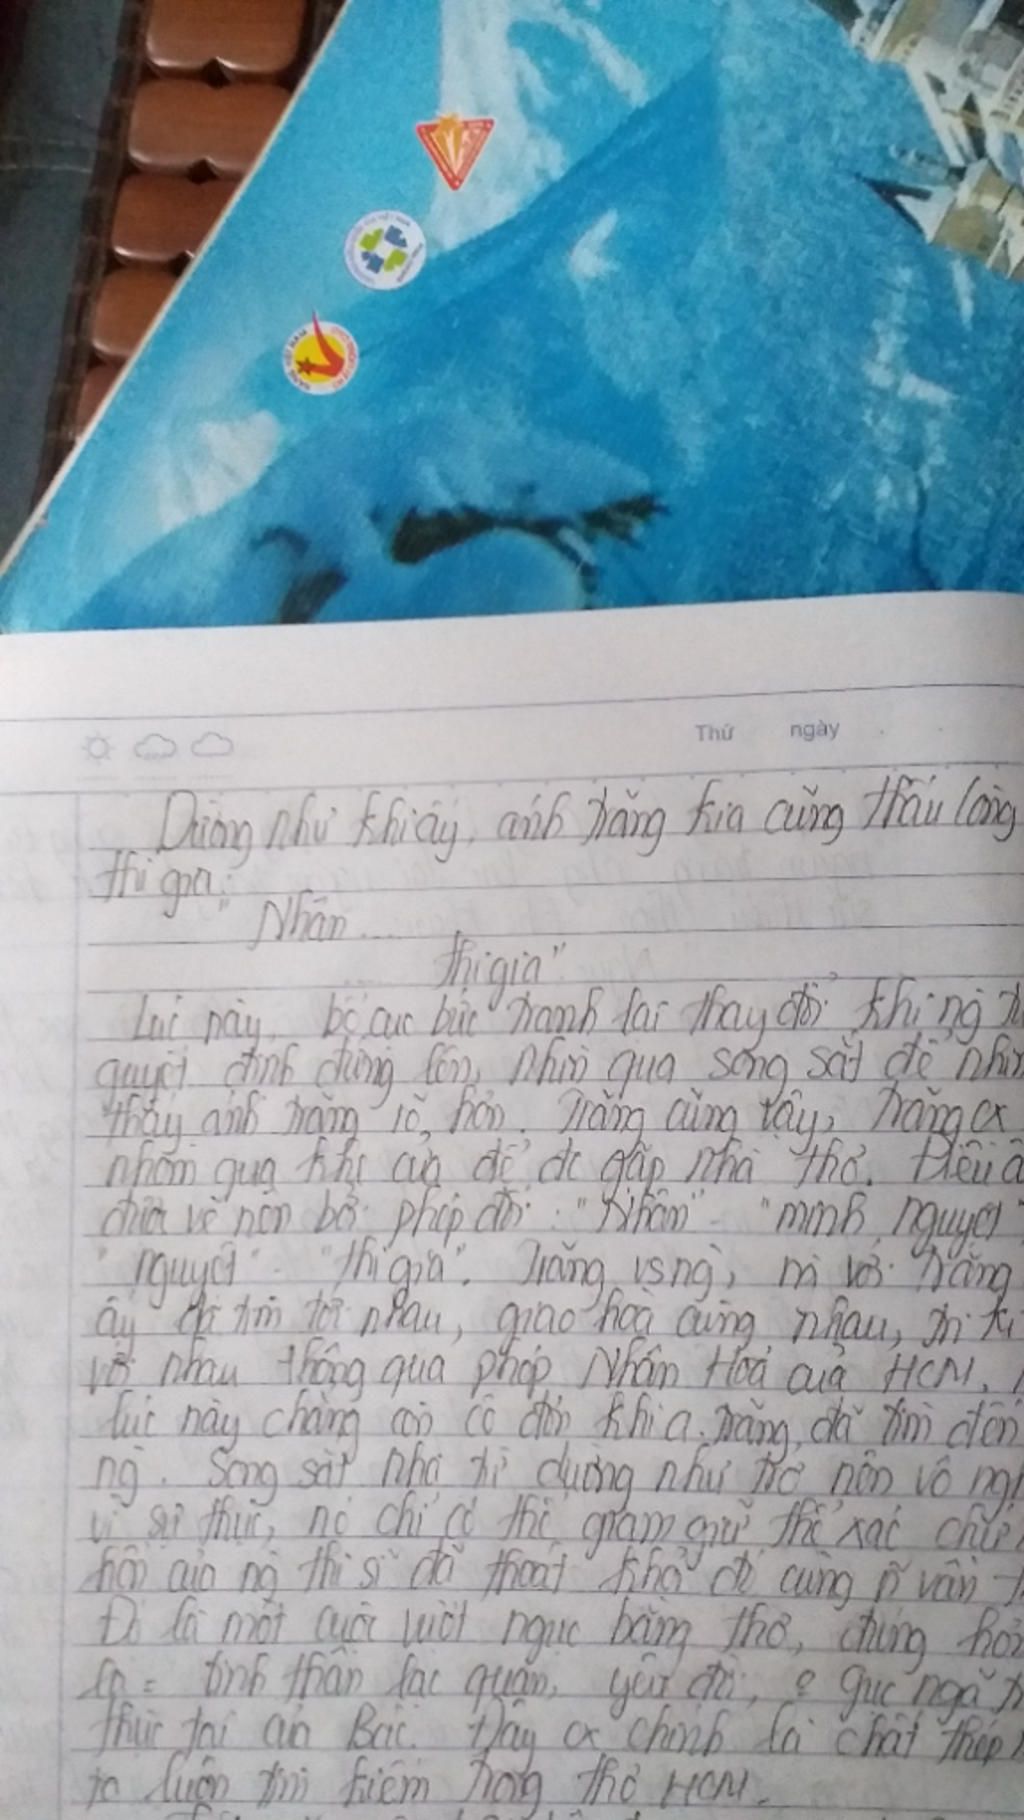 Thứ ngày
Dường như khi ấy, ánh trăng kia cũng thấu lòng
thi gia:
"Nhân....
thi gia"
Lúc này, bố cục bức tranh lại thay đổi khi ng
quyết định đứng lên, nhìn qua song sắt để nhìn
thấy ánh trăng rõ hơn. Trăng cũng vậy, trăng cx
nhòm qua khe cửa để đc gặp nhà thơ. Điều
đc vẽ nên bởi phép đối: "Nhân" - "minh nguyệt"
"nguyệt" - "thi gia". Trăng vs ng, ng với trăng
ấy đã tìm tới nhau, giao hoà cùng nhau, tri kỉ
với nhau thông qua phép Nhân Hoá của HCM.
Lúc này chẳng còn cô đơn khi a.trăng đã tìm đến
ng. Song sắt nhà tù dường như trở nên vô
vì sự thực, nó chỉ có thể giam giữ thể xác
hồn của ng thi sĩ đã thoát khỏi để cùng vần
Đó là một cuộc vượt ngục bằng thơ, đúng hơn
là = tinh thần lạc quan, yêu đời, gục ngã
thực tại của Bác. Đây cx chính là chất thép
ta luôn tìm kiếm trong thơ HCM.